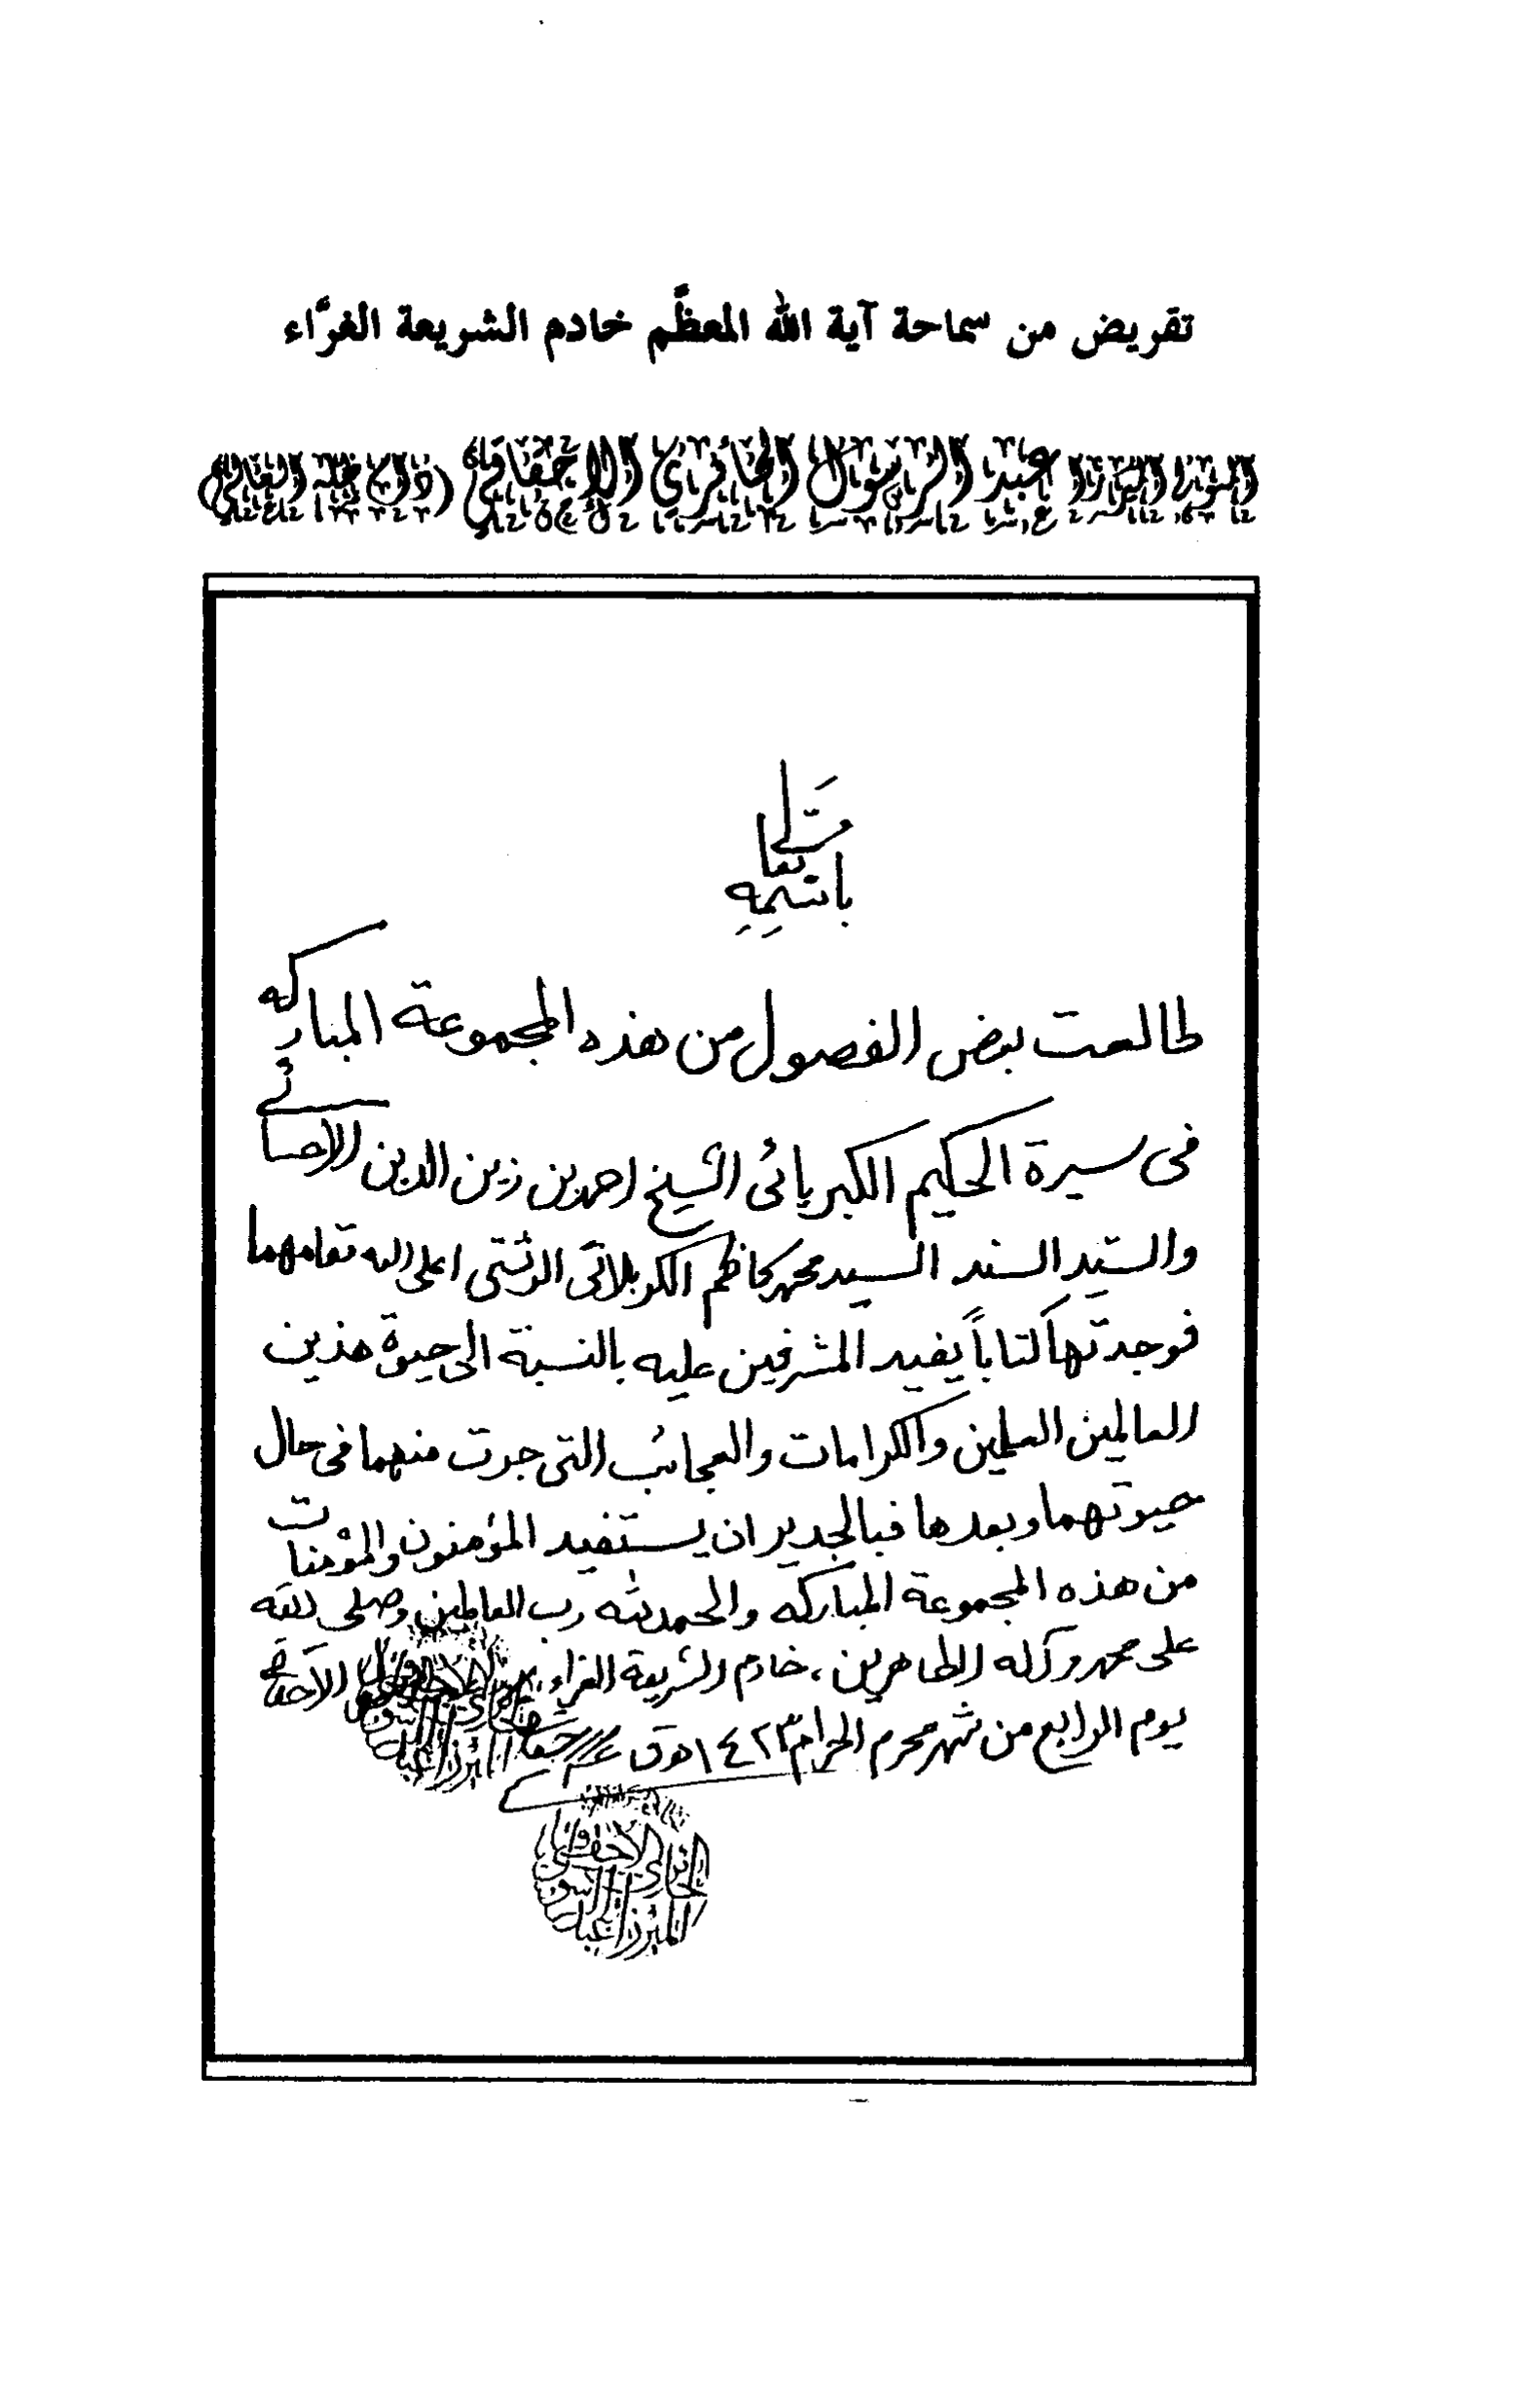 تقريض من سماحة آية الله المعظَّم خادم الشريعة الغرَّاء
المولى الميرزا عبد الرسول الحائري الإحقاقي (دام ظله العالي)
باسمه تعالى
طالعت بعض الفصول من هذه المجموعة المباركه
فى سيرة الحكيم الكبريائى الشيخ احمد بن زين الدين الاحسائي
والسيد السند السيد محمد كاظم الكربلائى الرشتى اعلى الله مقامهما
فوجدتها كتاباً يفيد المشرفين عليه بالنسبة الى حيوة هذين
العالمين العلمين والكرامات والعجائب التى جرت منهما فى حال
حيوتهما وبعدها فبالجدير ان يستفيد المؤمنون والمؤمنات
من هذه المجموعة المباركه والحمد لله رب العالمين وصلى الله
على محمد وآله الطاهرين، خادم الشريعة الغراء، الاحقاقي
يوم الرابع من شهر محرم الحرام ١٤٢٣ هـ ق
الاحقاقي
الحائري
الميرزا عبد الرسول